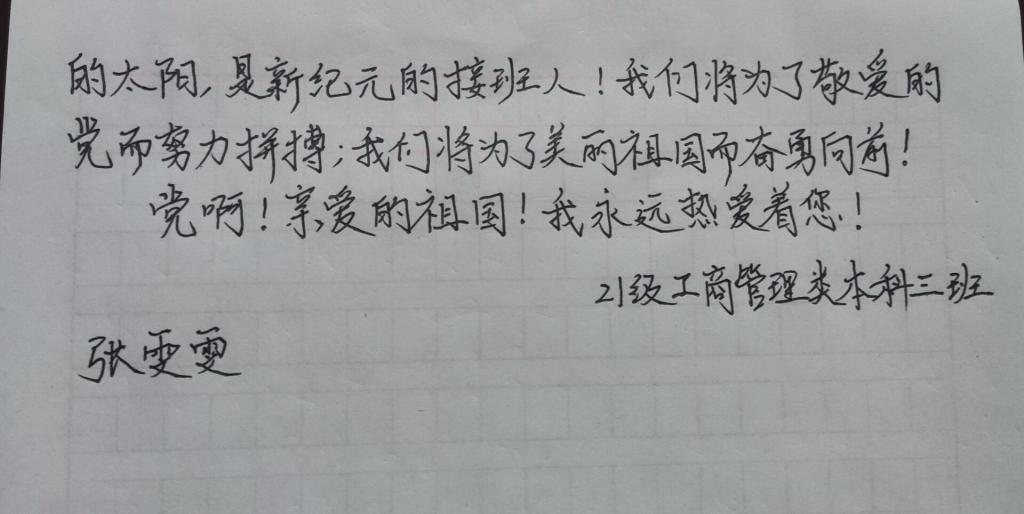 的太阳,是新纪元的接班人!我们将为了敬爱的
党而努力拼搏;我们将为了美丽祖国而奋勇向前!
党啊!亲爱的祖国!我永远热爱着您!
21级工商管理类本科三班
张雯雯